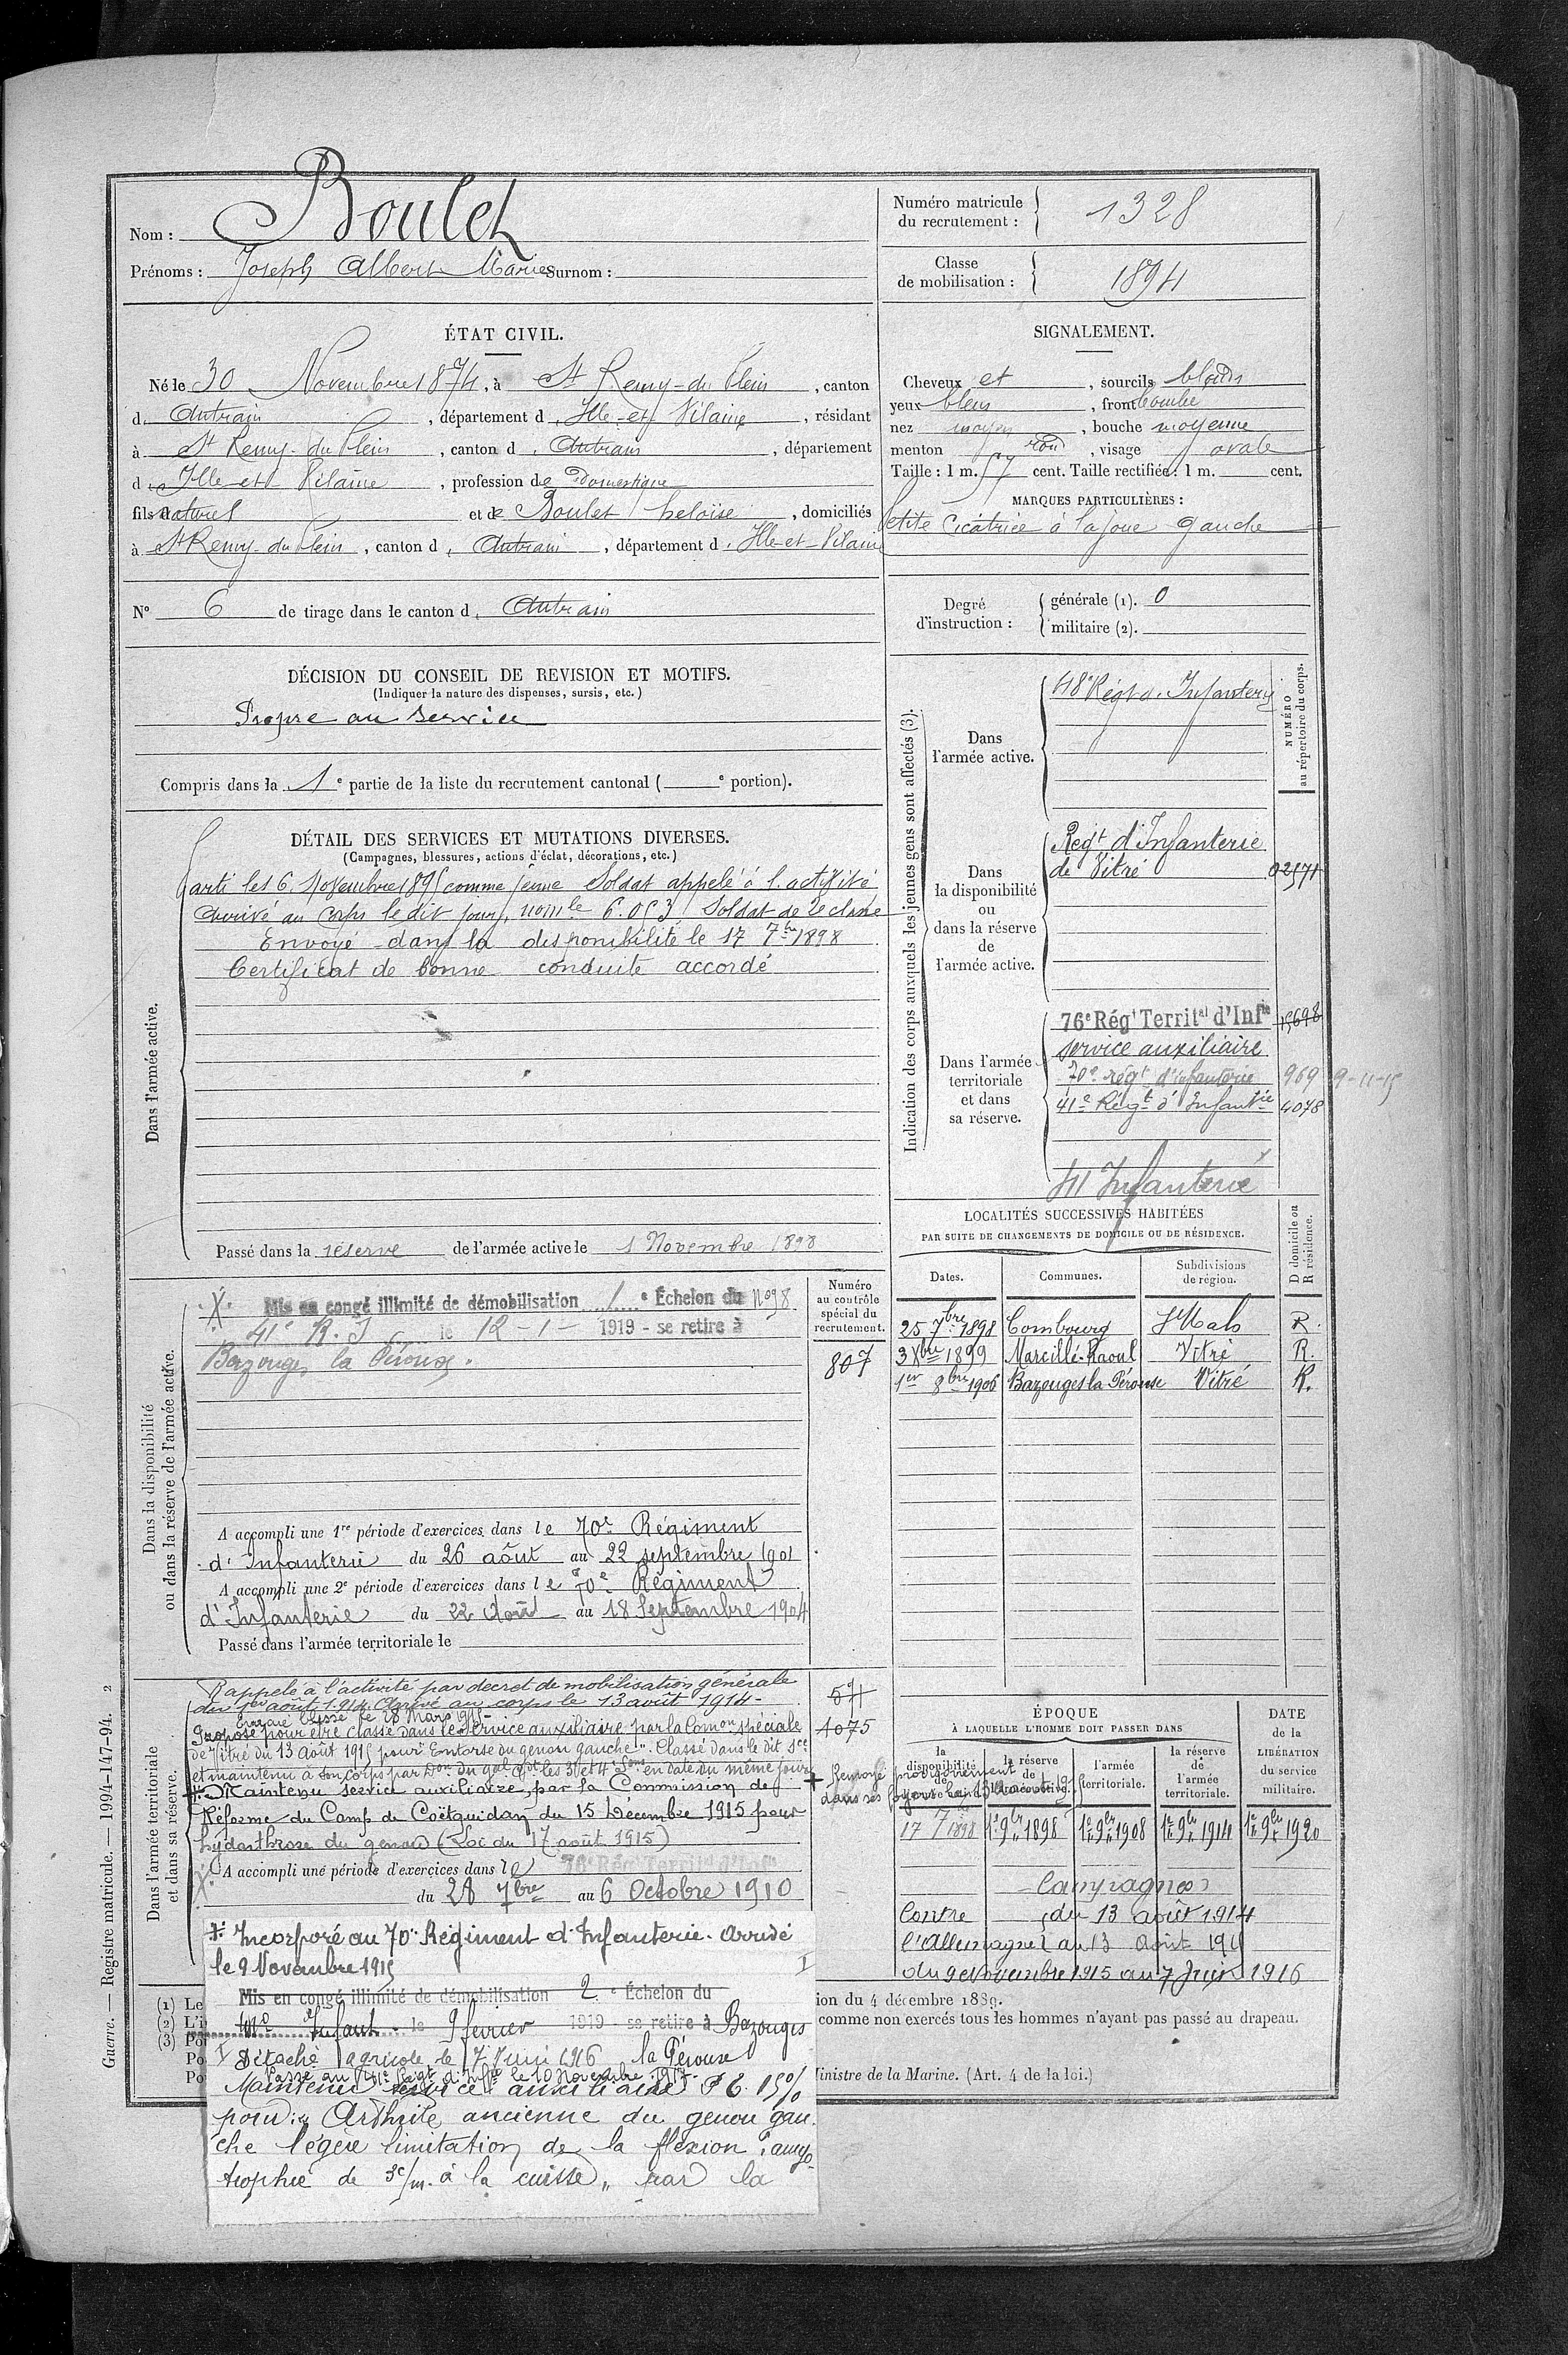 Nom : Boulet
Prénoms : Joseph Albert Marie Surnom :
Numéro matricule du recrutement : 1328
Classe de mobilisation : 1894
ÉTAT CIVIL.
Né le 30 Novembre 1874, à St Remy-du-Plein, canton
d. Antrain, département d. Ille-et-Vilaine, résidant
à St Remy-du-Plein, canton d. Antrain, département
d. Ille-et-Vilaine, profession de Domestique
fils naturel et de Boulet heloïse, domiciliés
à St Remy-du-Plein, canton d. Antrain, département d. Ille-et-Vilaine
No 6 de tirage dans le canton d. Antrain
SIGNALEMENT.
Cheveux et, sourcils blonds
yeux bleus, front bombé
nez moyen, bouche moyenne
menton rond, visage ovale
Taille : 1 m. 57 cent. Taille rectifiée : 1 m. cent.
MARQUES PARTICULIÈRES :
Petite Cicatrice à la joue gauche
Degré d'instruction : générale (1). 0
militaire (2).
DÉCISION DU CONSEIL DE REVISION ET MOTIFS.
(Indiquer la nature des dispenses, sursis, etc.)
Propre au service
Compris dans la 1e partie de la liste du recrutement cantonal ( e portion).
DÉTAIL DES SERVICES ET MUTATIONS DIVERSES.
(Campagnes, blessures, actions d'éclat, décorations, etc.)
Dans l'armée active.
Parti le 16 Novembre 1895 comme jeune Soldat appelé à l'activité
Arrivé au corps le dit jour, no mle 6.053 Soldat de 2e classe
Envoyé dans la disponibilité le 17 7bre 1898
Certificat de bonne conduite accordé
Passé dans la réserve de l'armée active le 1 Novembre 1898
Indication des corps auxquels les jeunes gens sont affectés (3).
NUMÉRO au répertoire du corps.
Dans l'armée active.
48e Régt d'Infanterie
Dans la disponibilité ou dans la réserve de l'armée active.
Regt d'Infanterie
de Vitré 02571
Dans l'armée territoriale et dans sa réserve.
76e Régt Territal d'Infie 15698
service auxiliaire
70e régt d'infanterie 969 9-11-15
41e Régt d'Infantie 4078
41 Infanterie
LOCALITÉS SUCCESSIVES HABITÉES
PAR SUITE DE CHANGEMENTS DE DOMICILE OU DE RÉSIDENCE.
Dates. Communes. Subdivisions de région. D domicile ou R résidence.
25 7bre 1898 Combourg St Malo R.
3 Xbre 1899 Marcillé-Raoul Vitré R.
1er 8bre 1906 Bazouges la Pérouse Vitré R.
Dans la disponibilité ou dans la réserve de l'armée active.
Numéro au contrôle spécial du recrutement.
807
Mis en congé illimité de démobilisation 1e Échelon du No 98
41e R.I le 12-1- 1919 - se retire à
Bazouges la Pérouse.
A accompli une 1re période d'exercices dans le 70e Régiment
d'Infanterie du 26 août au 22 septembre 1901
A accompli une 2e période d'exercices dans le 70e Régiment
d'Infanterie du 22 Août au 18 Septembre 1904
Passé dans l'armée territoriale le
Dans l'armée territoriale et dans sa réserve.
Rappelé à l'activité par decret de mobilisation générale
du 1er août 1914. Arrivé au corps le 13 août 1914-
blessé le 28 Mars 1915-
Proposé pour être classé dans le service auxiliaire par la Comon spéciale
de Vitré du 13 Août 1915 pour "Entorse du genou gauche". Classé dans le dit sce
et maintenu à son corps par Don du Gal Cdt les 3e et 4e Sons en date du même jour
Maintenu service auxiliaire, par la Commission de
Réforme du Camp de Coëtquidan du 15 Décembre 1915 pour
hydarthrose du genou (Loi du 17 août 1915)
A accompli une période d'exercices dans le 76e Régt Territal d'Infie
du 28 7bre au 6 Octobre 1910
4075
+ Renvoyé provisoirement
dans ses foyers le 13 Août 1915
Incorporé au 70e Régiment d'Infanterie. Arrivé
le 9 Novembre 1915
Mis en congé illimité de démobilisation 2e Échelon du
Infant. le 9 février 1919 - se retire à Bazouges
la Pérouse
Détaché agricole le 7 Juin 1916
Passé au 41e Régt d'Infie le 10 Novembre 1917-
Maintenu service auxiliaire 15%
pour : Arthrite ancienne du genou gau-
che légère limitation de la flexion, amyo-
trophie de 3c/m. à la cuisse" par la
ÉPOQUE
À LAQUELLE L'HOMME DOIT PASSER DANS
la disponibilité de l'armée active. la réserve de l'armée active. l'armée territoriale. la réserve de l'armée territoriale.
DATE de la LIBÉRATION du service militaire.
17 7bre 1898 1er 9bre 1898 1er 9bre 1908 1er 9bre 1914 1er 9bre 1920
Campagnes
Contre l'Allemagne du 13 août 1914
au 13 Août 191
du 9 Novembre 1915 au 7 Juin 1916
(1) Le
(2) L'i
(3) Po
Po
Po
ion du 4 décembre 1889.
comme non exercés tous les hommes n'ayant pas passé au drapeau.
inistre de la Marine. (Art. 4 de la loi.)
Guerre. — Registre matricule. — 1994-147-94. 2